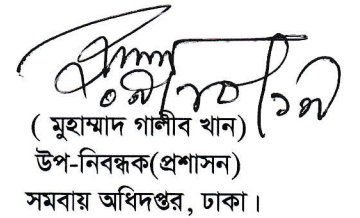 ( মুহাম্মাদ গালীব খান)
উপ-নিবন্ধক(প্রশাসন)
সমবায় অধিদপ্তর, ঢাকা।